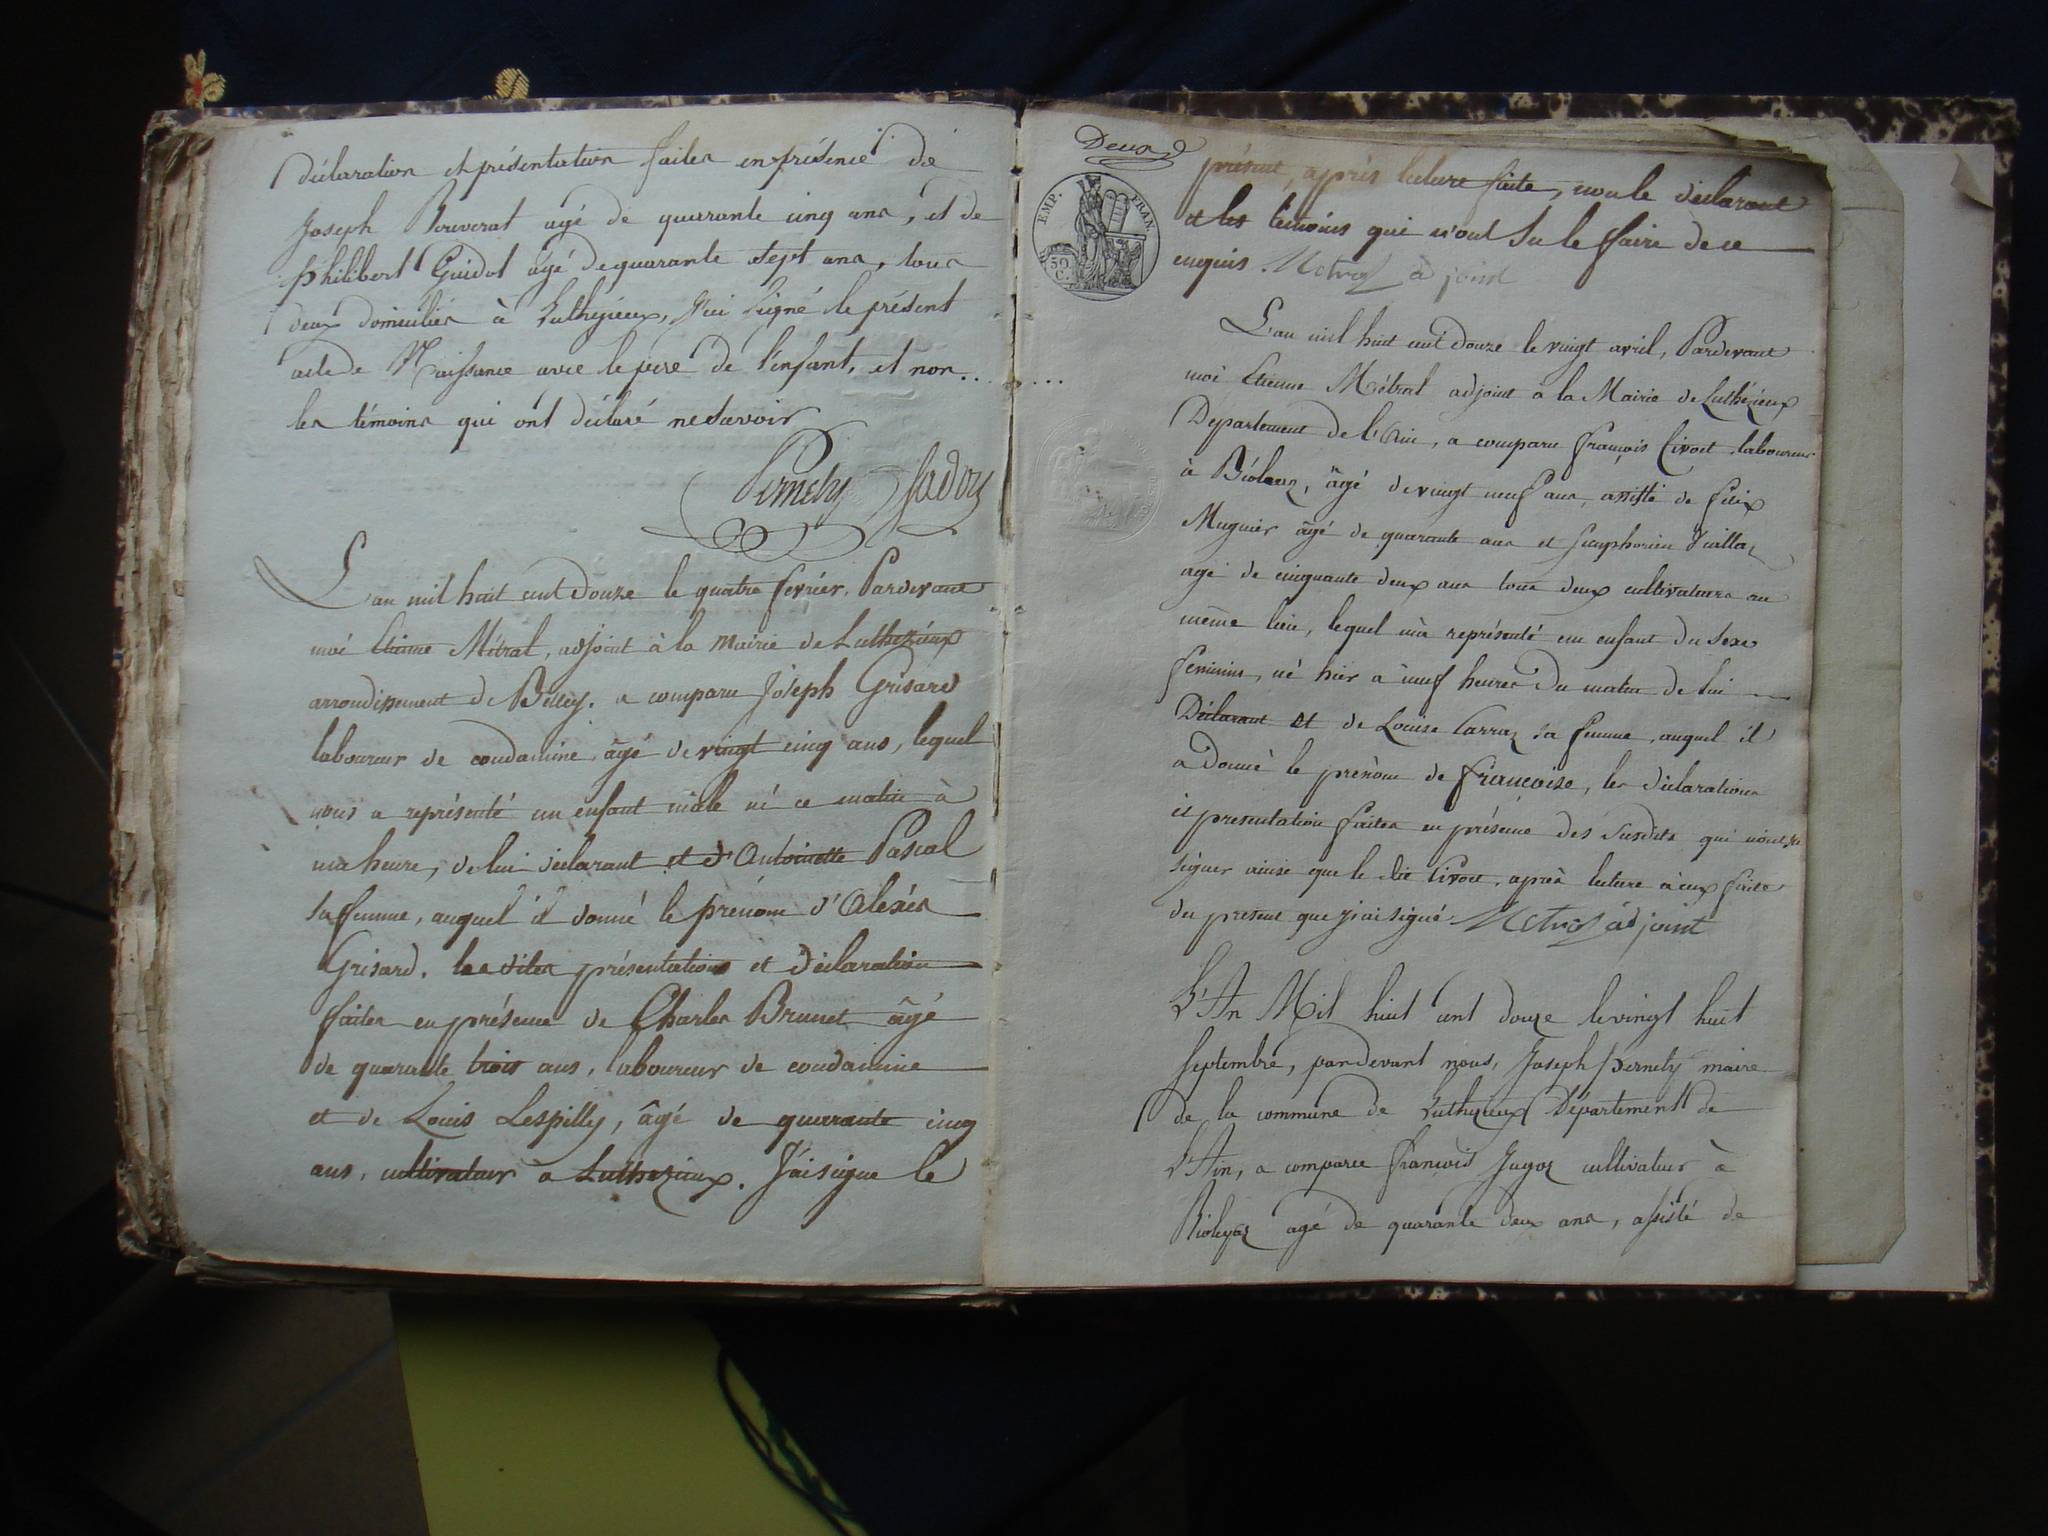 Déclaration et présentation faites en présence de
Joseph âgé de quarante cinq ans, et de
Philibert Guidot âgé de quarante sept ans, tous
deux domiciliés à Luthézieux, j'ai signé le présent
acte de Naissance avec le père de l'enfant, et non...
les témoins qui ont déclaré ne savoir
Pernety
L'an mil huit cent douze le quatre février, Pardevant
moi Etienne Métral, adjoint à la Mairie de Luthezieux
arrondissement de Belley. a comparu Joseph Grisard
laboureur de condamine, âgé de vingt cinq ans, lequel
nous a représenté un enfant mâle né ce matin à
une heure, de lui déclarant et d'Antoinette Pascal
sa femme, auquel il donné le prénom d'Alexis
Grisard. les dites présentations et déclaration
faites en présence de Charles Brunet âgé
de quarante trois ans, laboureur de condamine
et de Louis Lespilly, âgé de quarante cinq
ans, cultivateur a Luthezieux. J'ai signé le
Deux
EMP. FRAN.
50 C.
présent, après lecture faite, non le déclarant
et les témoins qui n'ont su le faire de ce
enquis. Metral adjoint
L'an mil huit cent douze le vingt avril, Pardevant
moi Etienne Métral adjoint a la Mairie de Luthézieux
Département de l'Ain, a comparu françois Civoct laboureur
à âgé de vingt neuf ans, assisté de félix
Muguier âgé de quarante ans et Simphorien
agé de cinquante deux ans tous deux cultivateurs au
même lieu, lequel m'a représenté un enfant du Sexe
féminin, né hier à neuf heures du matin de lui
Déclarant et de Louise Carraz sa femme, auquel il
a donné le prénom de françoise, les déclarations
et presentation faites en présence des susdits qui n'ont su
signer ainsi que le dit Civoct, après lecture à eux faite
du present que j'ai signé Metral adjoint
L'An Mil huit cent douze le vingt huit
Septembre, par devant nous, Joseph Pernety maire
de la commune de Luthezieux Département de
L'Ain, a comparu françois Jugoz cultivateur à
agé de quarante deux ans, assisté de